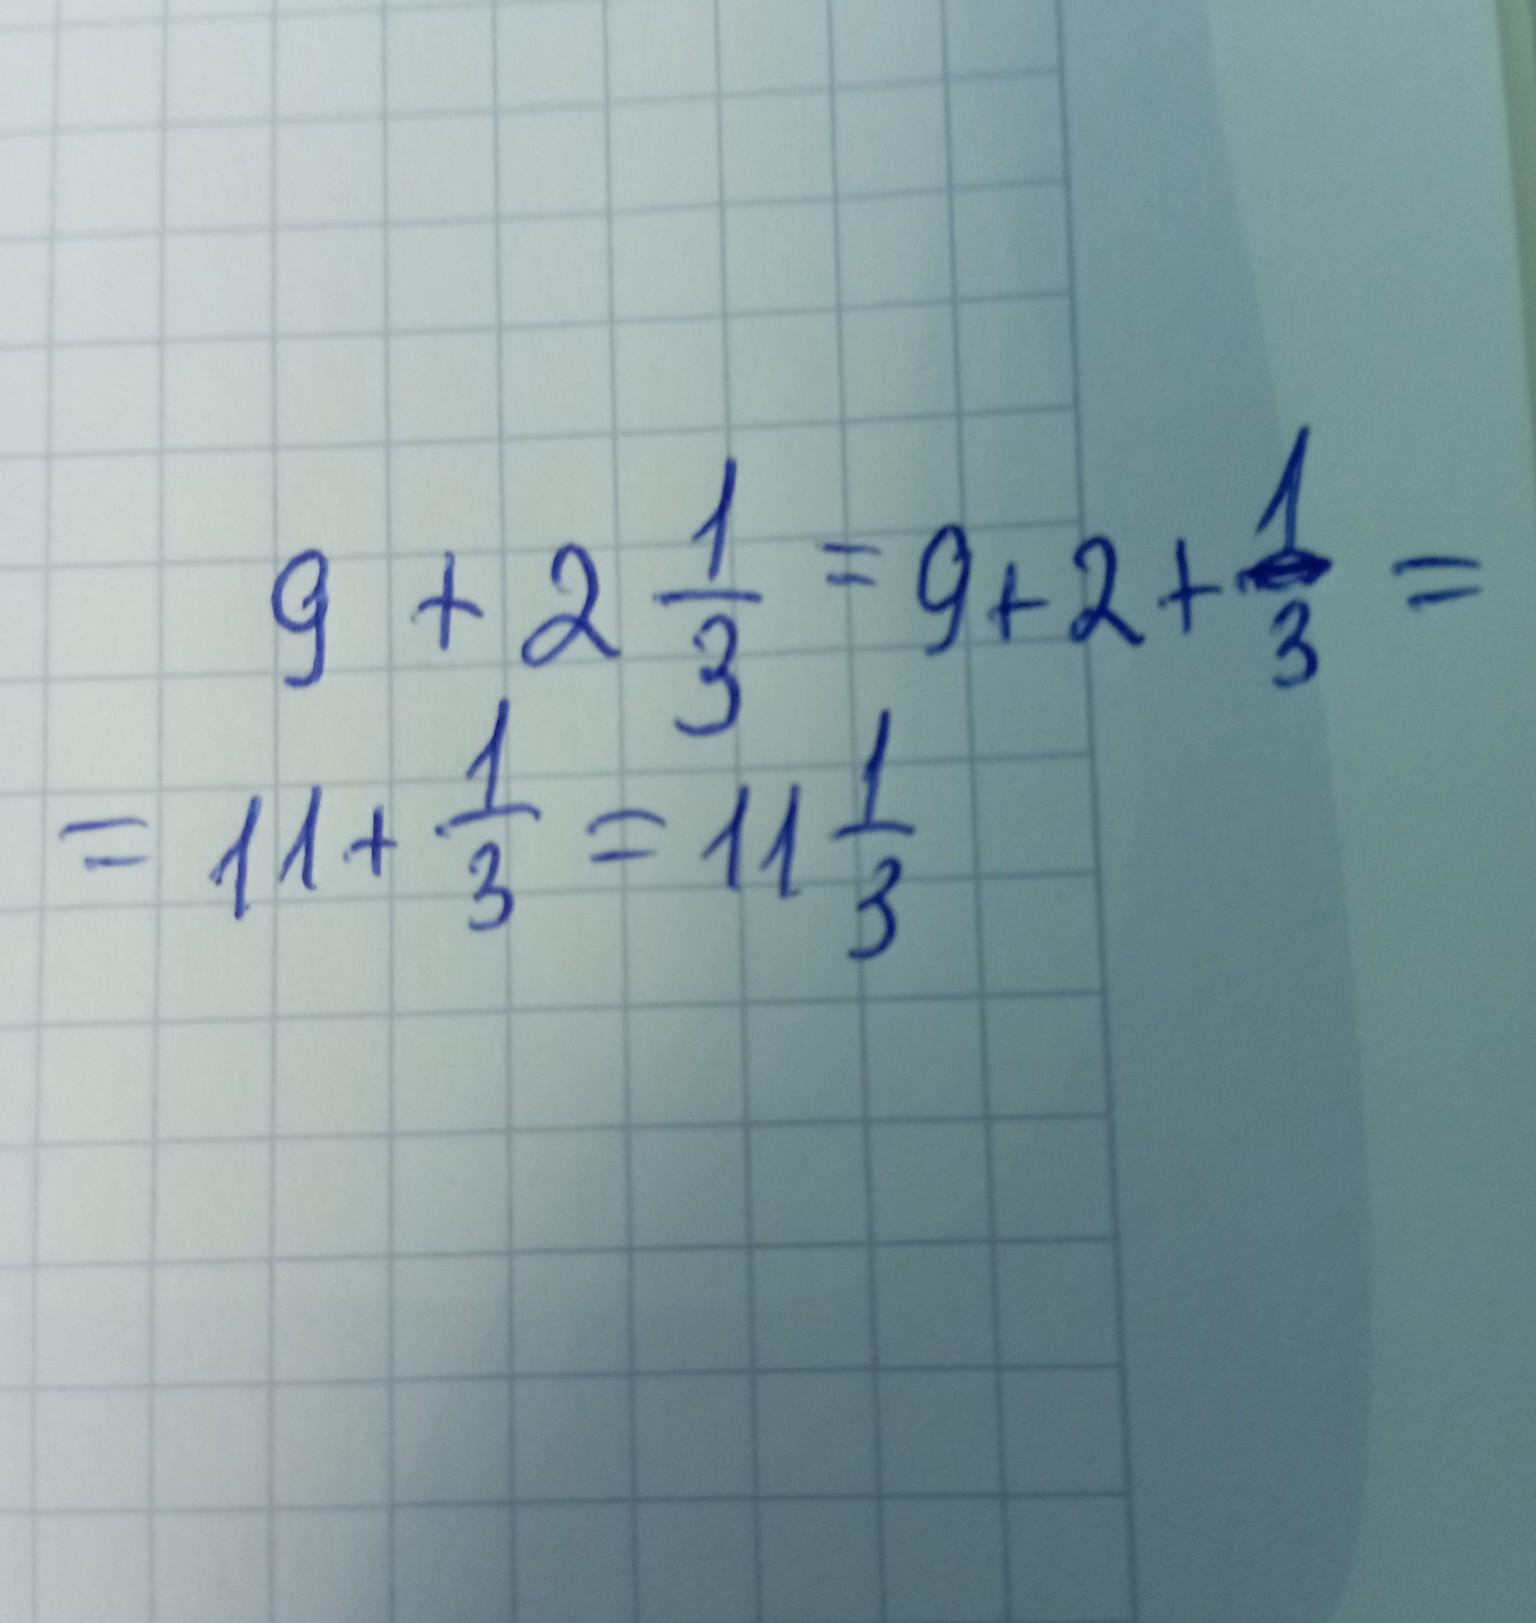 9 + 2 1/3 = 9 + 2 + 1/3 =
= 11 + 1/3 = 11 1/3